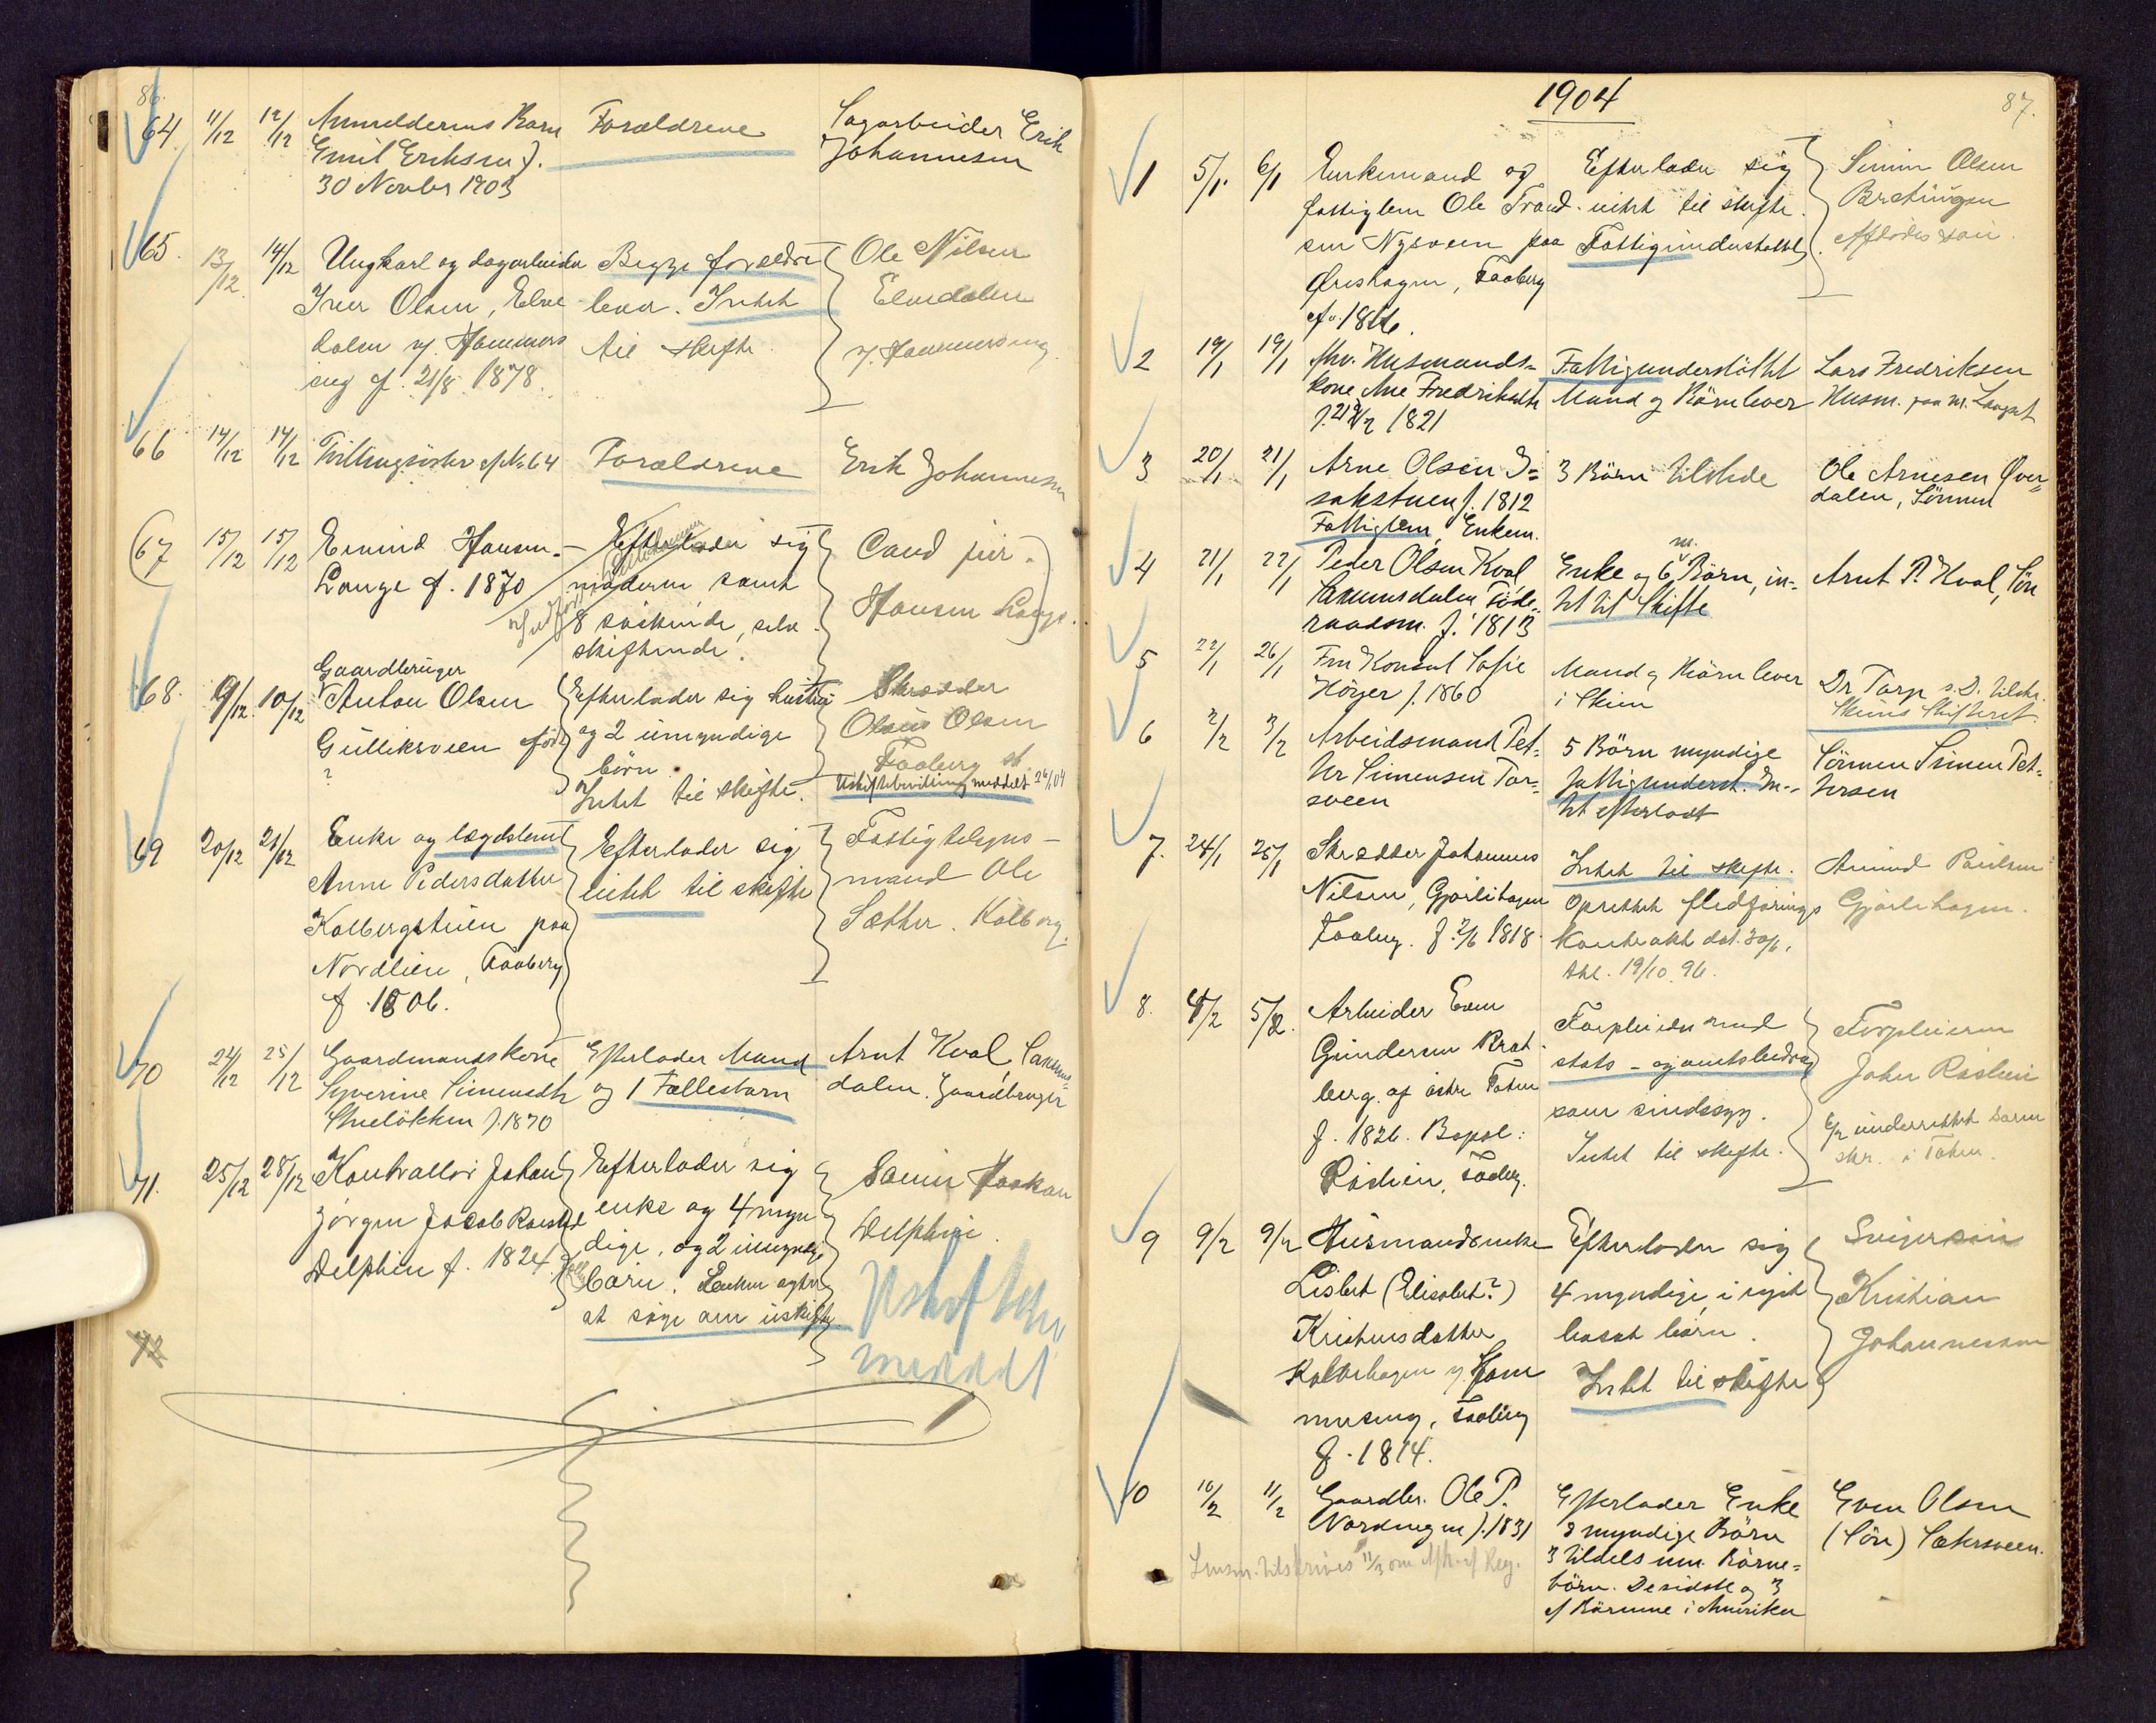 86.
64. 11/12 12/12 Anmelderens Barn Forældrene Sagarbeider Erik
Emil Eriksen f. Johannesen
30 Novbr 1903
65. 13/12 14/12 Ungkarl og dagarbeider Begge forældre Ole Nilsen
Iver Olsen, Elve lever. Intet Elvedalen
dalen u/ Hammers til skifte u/ Hammerseng.
eng f. 21/8 1878.
66 14/12 14/12 Tvillingsøster af No 64 Forældrene Erik Johannesen
67 15/12 15/12 Eivind Hansen- Efterlader sig Cand jur.
Lange f. 1870 moderen samt Hansen Lange.
8 søskende, selv
skiftende.
68. 9/12. 10/12 Gaardbruger
Anton Olsen Efterlader sig hustru Skrædder
Gulliksveen født og 2 umyndige Olaus Olsen
? børn. Faaberg st.
Intet til skifte. Uskiftebevilling meddelt 26/1 04
69 20/12 21/12 Enke og lægdslem Efterlader sig Fattigtilsyns-
Anne Pedersdatter intet til skifte mand Ole
Kolbergstuen paa Sætther. Kolberg.
Nordlien, Faaberg
f. 1806.
70 24/12 25/12 Gaardmandskone Efterlader Mand Arnt Kval, Saxums-
Syverine Simensdtr og 1 Fællesbarn dalen. Gaardbruger
f. 1870
71. 25/12 28/12 Kontrollør Johan Efterlader sig
Jørgen Jacob enke og 4 myn-
Delphin f. 1824 dige, og 2 umyndige Delphin.
børn. Enken agter
at søge om uskifte. Uskiftebev.
meddelt
72
1904
87.
1 5/1. 6/1 Enkemand og Efterlader sig Simen Olsen
fattiglem Ole Trond- intet til skifte. Bræthingen
sen Nysveen paa Fattigunderstøttet. Afdødes søn.
Øreshagen, Faaberg
f. 1816.
2 19/1 19/1 fhv. Husmands- Fattigunderstøttet Lars Fredriksen
kone Ane Fredriksdtr Mand og Børn lever Husm. paa
1821
3 20/1 21/1 Arne Olsen I- 3 Børn tilstede Ole Arnesen Øver-
sakstuen f. 1812 dalen, Sønnen
Fattiglem, Enkem.
4 21/1 22/1 Peder Olsen Kval, Enke og 6 m. Børn, in- Arnt P. Kval, Søn
Saxumsdalen, Føde- tet til Skifte
raadsm. f. 1813
5 22/1 26/1 Fru Konsul Sofie Mand og Børn lever Dr Torp s. D. tilskr.
Höyer f. 1860 i Skien Skiens Skifteret.
6 2/2 3/2 Arbeidsmand Pet- 5 Børn myndige Sønnen Simen Pet-
ter Simensen Tor- fattigunderst. In- tersen
sveen tet efterladt
7. 24/1 25/1 Skrædder Johannes Intet til skifte. Amund Paulsen
Nilsen, Gjørlihagen Oprettet fledførings Gjørlihagen.
Faaberg. f. 2/6 1818. kontrakt dat. 30/6,
thl. 19/10. 96.
8. 4/2 5/2. Arbeider Even Forpleiden med Forpleieren
Gundersen Brat- stats- og amtsbidrag Johan Røslien
berg. af østre Toten som sindssyg. 6/2 underrettet soren
f. 1826. Bopæl: Intet til skifte. skr. i Toten.
Røslien, Faaberg.
9 9/2 9/2 Husmandsenke Efterlader sig Svigersøn
Lisbet (Elisabet?) 4 myndige, i rigit Kristian
Kristensdatter bosat børn. Johannessen
Kolbshagen u. Ham Intet til skifte
merseng, Faaberg
f. 1814.
10 10/2 11/2 Gaardbr. Ole P. Efterlader Enke Even Olsen
Nordengen f. 1831 3 myndige Børn (Søn) Sætersveen.
Lensm. tilskrives 11/3 om Afskr. af Reg. 3 tildels um. Børne-
børn. De sidste og 3
af Børnene i Amerika